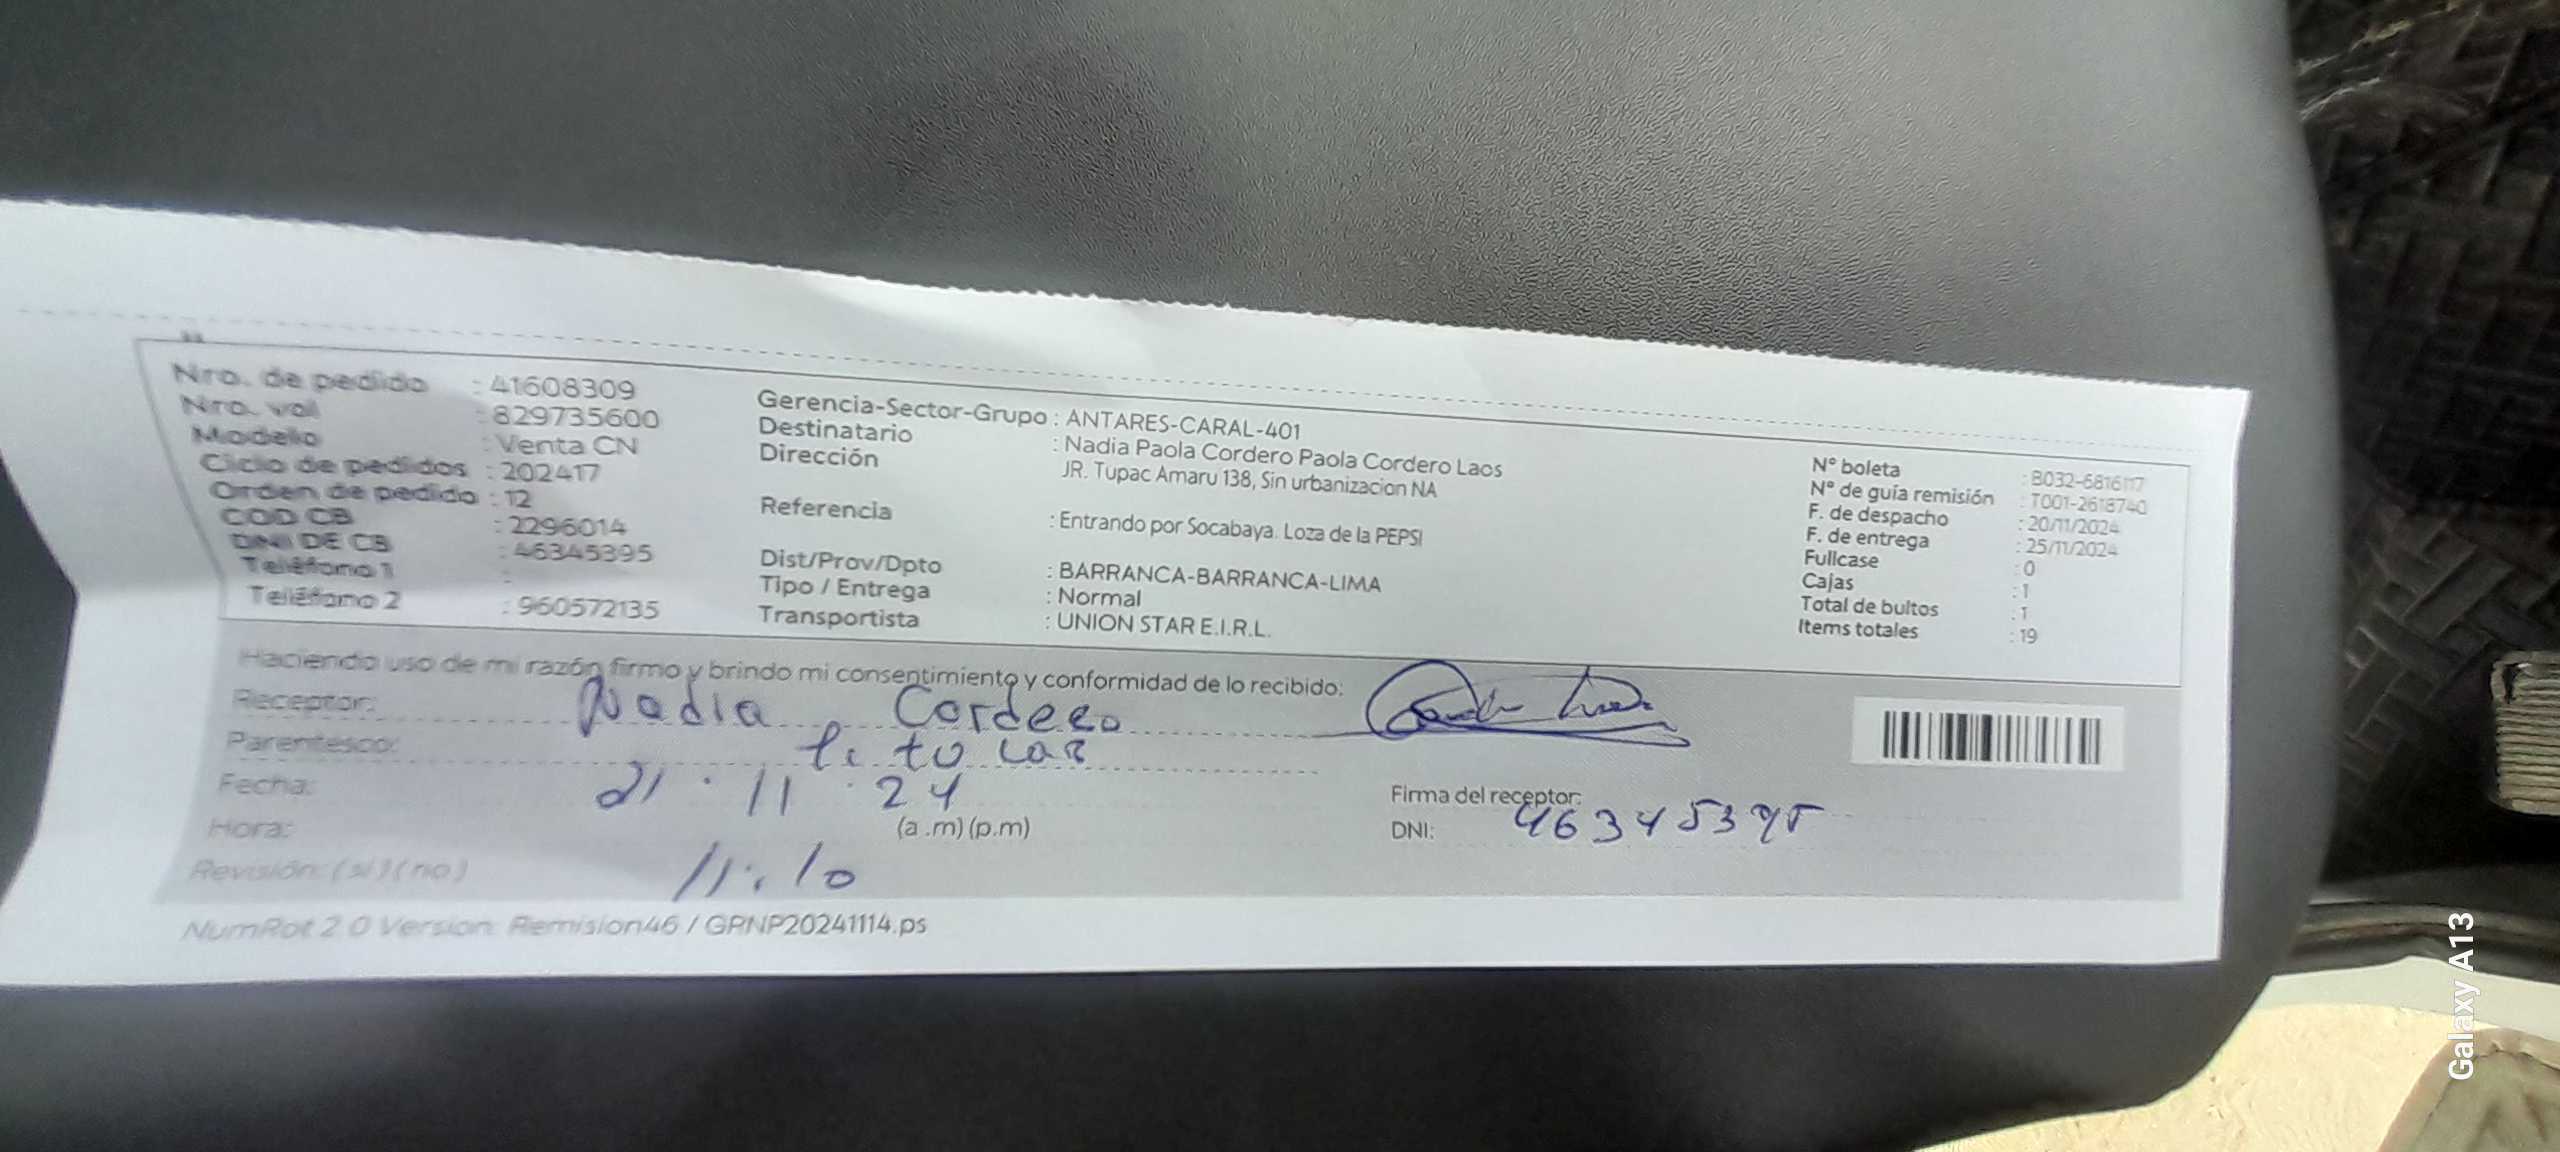 Nro. de pedido : 41608309
Nro. vol : 829735600
Modelo : Venta CN
Ciclo de pedidos : 202417
Orden de pedido : 12
COD CB : 2296014
DNI DE CB : 46345395
Teléfono 1 :
Teléfono 2 : 960572135
Gerencia-Sector-Grupo : ANTARES-CARAL-401
Destinatario : Nadia Paola Cordero Paola Cordero Laos
Dirección JR. Tupac Amaru 138, Sin urbanizacion NA
Referencia : Entrando por Socabaya. Loza de la PEPSI
Dist/Prov/Dpto : BARRANCA-BARRANCA-LIMA
Tipo / Entrega : Normal
Transportista : UNION STAR E.I.R.L.
N° boleta : B032-6816117
N° de guia remisión : T001-2618740
F. de despacho : 20/11/2024
F. de entrega : 25/11/2024
Fullcase : 0
Cajas : 1
Total de bultos : 1
Items totales : 19
Haciendo uso de mi razón firmo y brindo mi consentimiento y conformidad de lo recibido:
Receptor: Nadia Cordero
Parentesco: titular
Fecha: 21 · 11 · 24
Hora: 11:10 (a .m) (p.m)
Revisión: ( si ) ( no )
Firma del receptor:
DNI: 46345395
NumRot 2.0 Version: Remision46 / GPNP20241114.ps
Galaxy A13